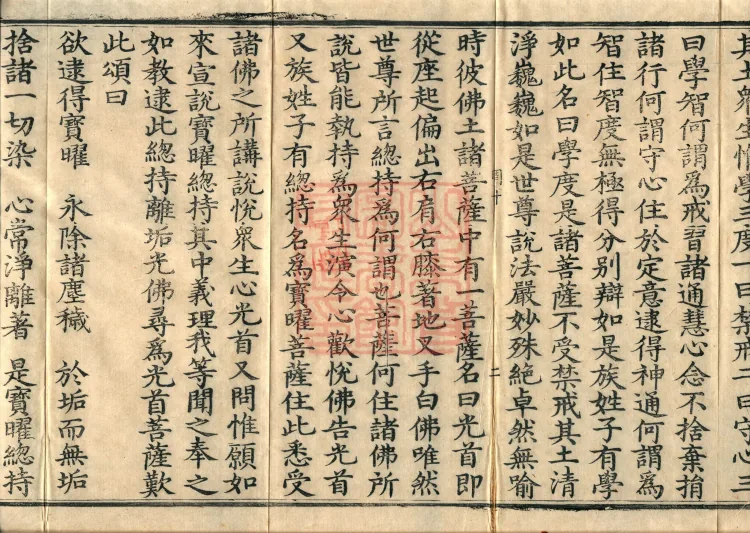 其土衆生惟學三度一曰禁戒二曰守心三
曰學智何謂爲戒習諸通慧心念不捨棄捐
諸行何謂守心住於定意逮得神通何謂爲
智住智度無極得分别辯如是族姓子有學
如此名曰學度是諸菩薩不受禁戒其土清
淨巍巍如是世尊說法嚴妙殊絶卓然無喻
二
時彼佛土諸菩薩中有一菩薩名曰光首即
從座起偏出右肩右膝著地叉手白佛唯然
世尊所言總持爲何謂也菩薩何住諸佛所
說皆能執持爲衆生演令心歡悅佛告光首
又族姓子有總持名爲寶曜菩薩住此悉受
諸佛之所講說悅衆生心光首又問惟願如
來宣說寶曜總持其中義理我等聞之奉之
如教逮此總持離垢光佛尋爲光首菩薩歎
此頌曰
欲逮得寶曜 永除諸塵穢 於垢而無垢
捨諸一切染 心常淨離著 是寶曜總持